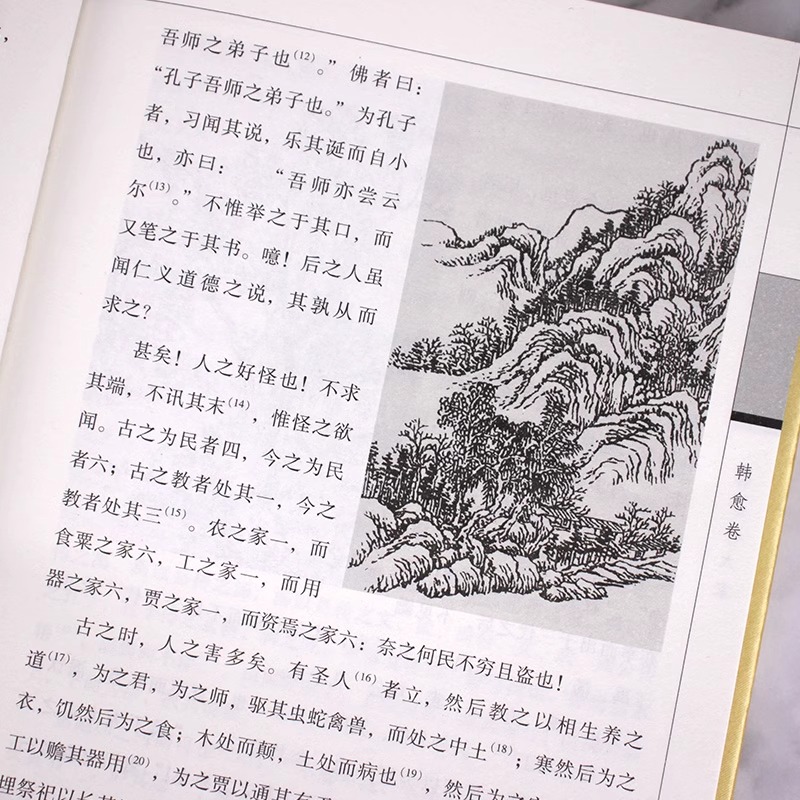 吾师之弟子也(12)。”佛者曰：
“孔子吾师之弟子也。”为孔子
者，习闻其说，乐其诞而自小
也，亦曰： “吾师亦尝云
尔(13)。”不惟举之于其口，而
又笔之于其书。噫！后之人虽
闻仁义道德之说，其孰从而
求之？
甚矣！人之好怪也！不求
其端，不讯其末(14)，惟怪之欲
闻。古之为民者四，今之为民
者六；古之教者处其一，今之
教者处其三(15)。农之家一，而
食粟之家六，工之家一，而用
器之家六，贾之家一，而资焉之家六：奈之何民不穷且盗也！
古之时，人之害多矣。有圣人(16)者立，然后教之以相生养之
道(17)，为之君，为之师，驱其虫蛇禽兽，而处之中土(18)；寒然后为之
衣，饥然后为之食；木处而颠，土处而病也(19)，然后为之
工以赡其器用(20)，为之贾以通其有
埋祭祀以长其
韩愈卷